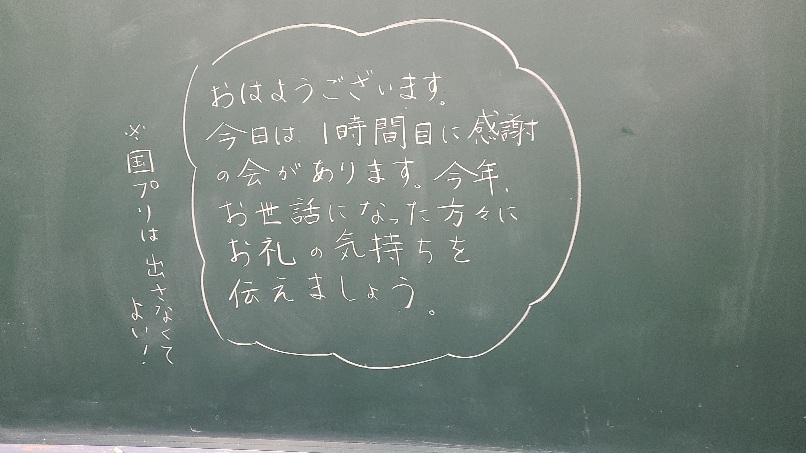 おはようございます。
今日は、1時間目に感謝
の会があります。今年、
お世話になった方々に
お礼の気持ちを
伝えましょう。
※国プリは出さなくて
よい!